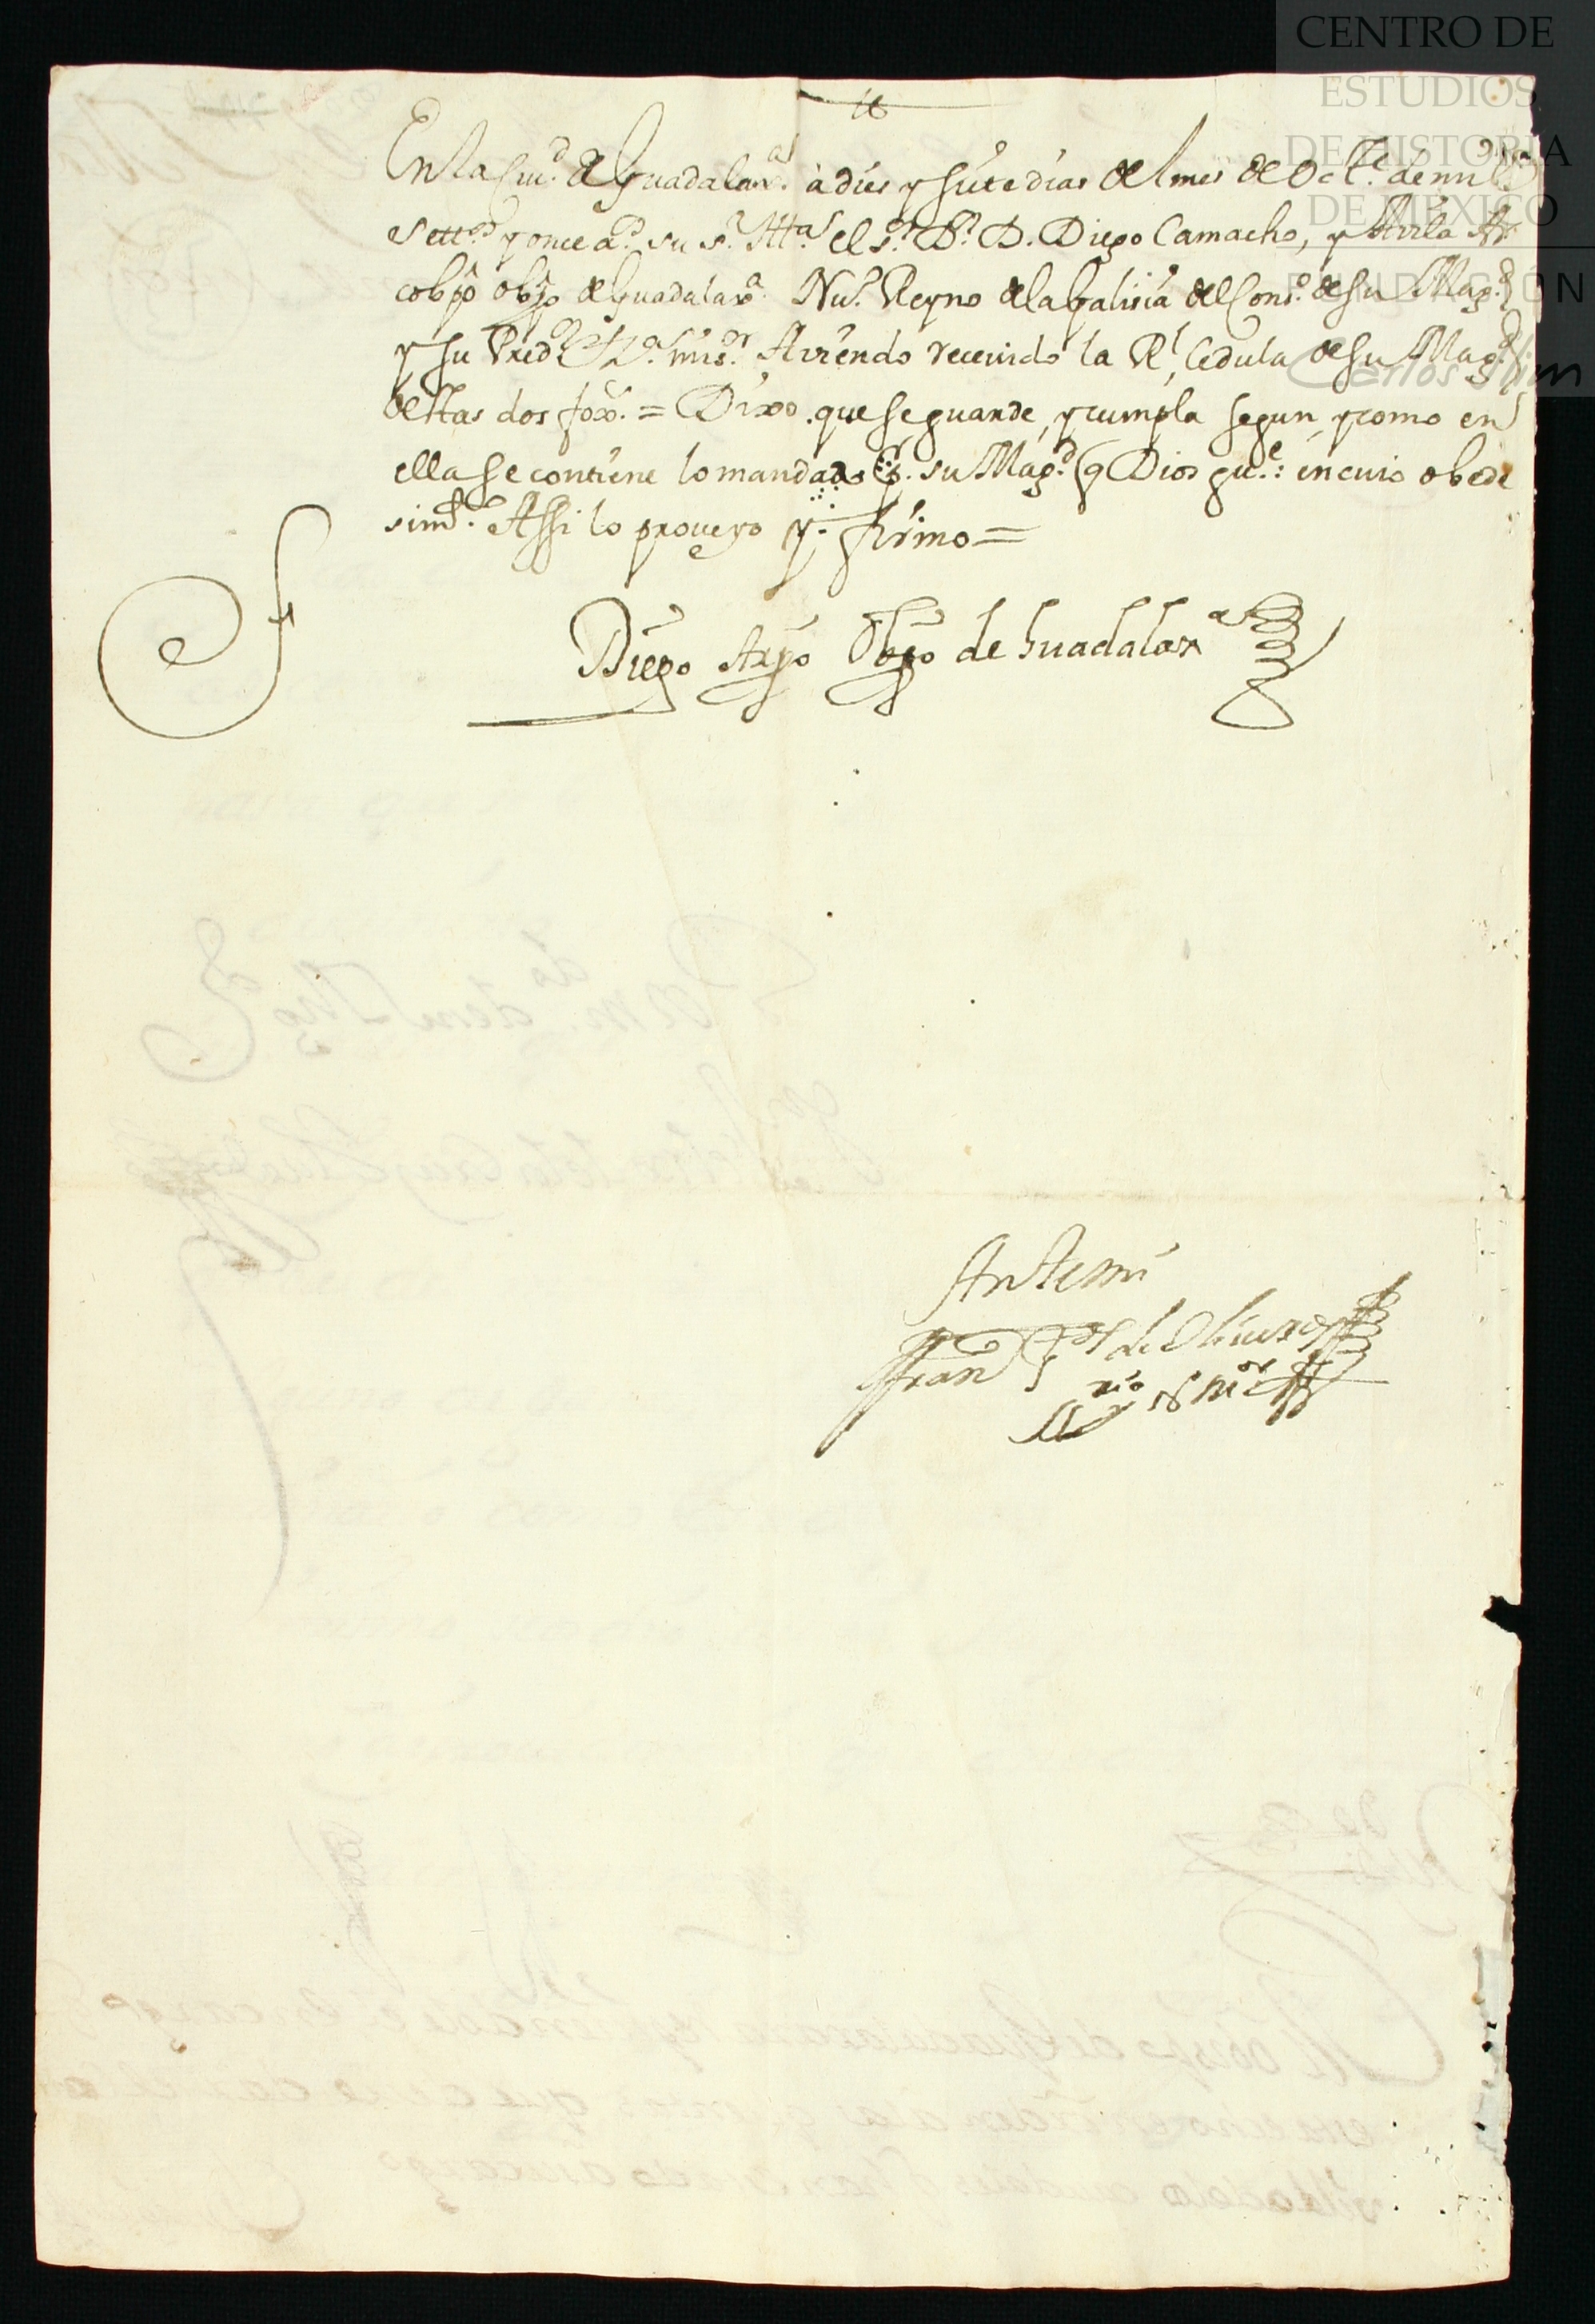 CENTRO DE
ESTUDIOS
DE HISTORIA
DE MÉXICO
FUNDACIÓN
Carlos Slim
En la Ciu.d de Guadalax.a a dies y siete dias del mes de Oct.e de mil
Settes y once a.s su s.a Ill.a el s.r D.r D. Diego Camacho, y Avila Ar
cobpo obpo de Guadalax.a Nu.o Reyno de la Galisia del Cons.o de su Mag.d
y su Pred.or &.a mis.or Aviendo recevido la R.l Cedula de su Mag.d
destas dos fox.s = Dixo que se guarde, y cumpla segun, y como en
ella se contiene lo mandado p.r su Mag.d (q Dios gu.e: en cuio obede
simt.o Assi lo proveyo y firmo =
Diego Arpo Obpo de Guadalax.a
Ante mi
Fran de Olivera